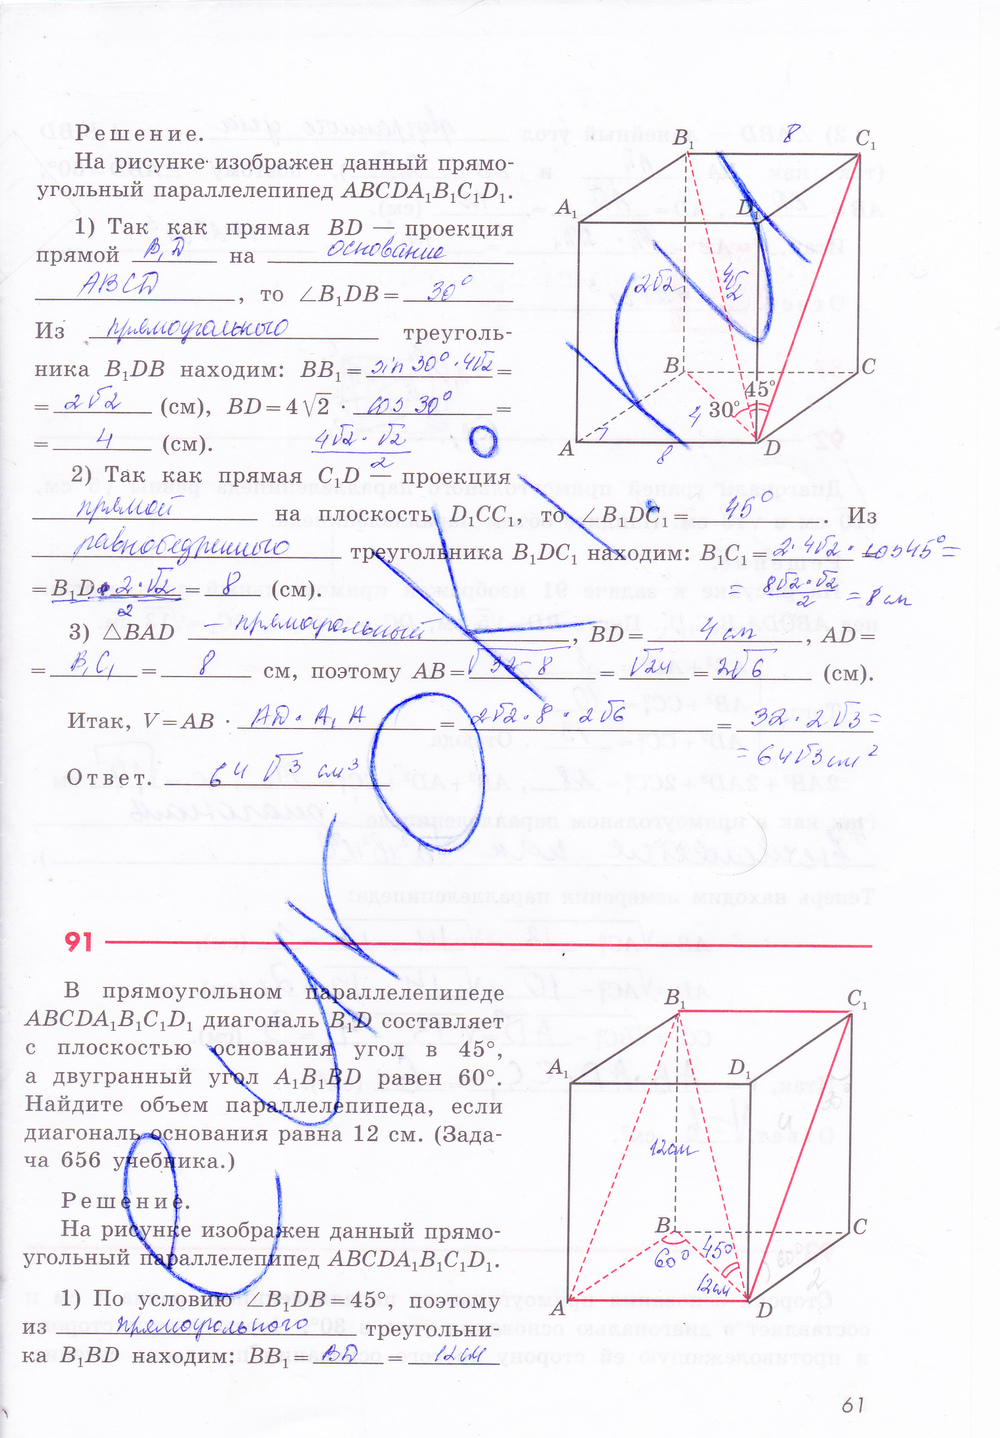 Решение.
На рисунке изображен данный прямо-
угольный параллелепипед ABCDA₁B₁C₁D₁.
1) Так как прямая BD — проекция
прямой B₁D на основание
ABCD, то ∠B₁DB = 30°
Из прямоугольного треуголь-
ника B₁DB находим: BB₁ = sin 30° · 4√2 =
= 2√2 (см), BD = 4√2 · cos 30° =
= 4 (см). 4√2 · √2 / 2
2) Так как прямая C₁D — проекция
прямой на плоскость D₁CC₁, то ∠B₁DC₁ = 45°. Из
равнобедренного треугольника B₁DC₁ находим: B₁C₁ = 2·4√2 · cos 45° =
= B₁D · 2·√2 / 2 = 8 (см). = 8√2·√2 / 2 = 8 см
3) △BAD – прямоугольный, BD = 4 см, AD =
= B₁C₁ = 8 см, поэтому AB = √32-8 = √24 = 2√6 (см).
Итак, V = AB · AD · A₁A = 2√2 · 8 · 2√6 = 32 · 2√3 =
= 64√3 см²
Ответ. 64√3 см³
B₁ 8 C₁
A₁ D₁
2√2 4√2
B C
45°
4 30°
A 8 D
91
В прямоугольном параллелепипеде
ABCDA₁B₁C₁D₁ диагональ B₁D составляет
с плоскостью основания угол в 45°,
а двугранный угол A₁B₁BD равен 60°.
Найдите объем параллелепипеда, если
диагональ основания равна 12 см. (Зада-
ча 656 учебника.)
Решение.
На рисунке изображен данный прямо-
угольный параллелепипед ABCDA₁B₁C₁D₁.
1) По условию ∠B₁DB = 45°, поэтому
из прямоугольного треугольни-
ка B₁BD находим: BB₁ = BD = 12см
B₁ C₁
A₁ D₁
12см
B C
60° 45°
12см
A D
61